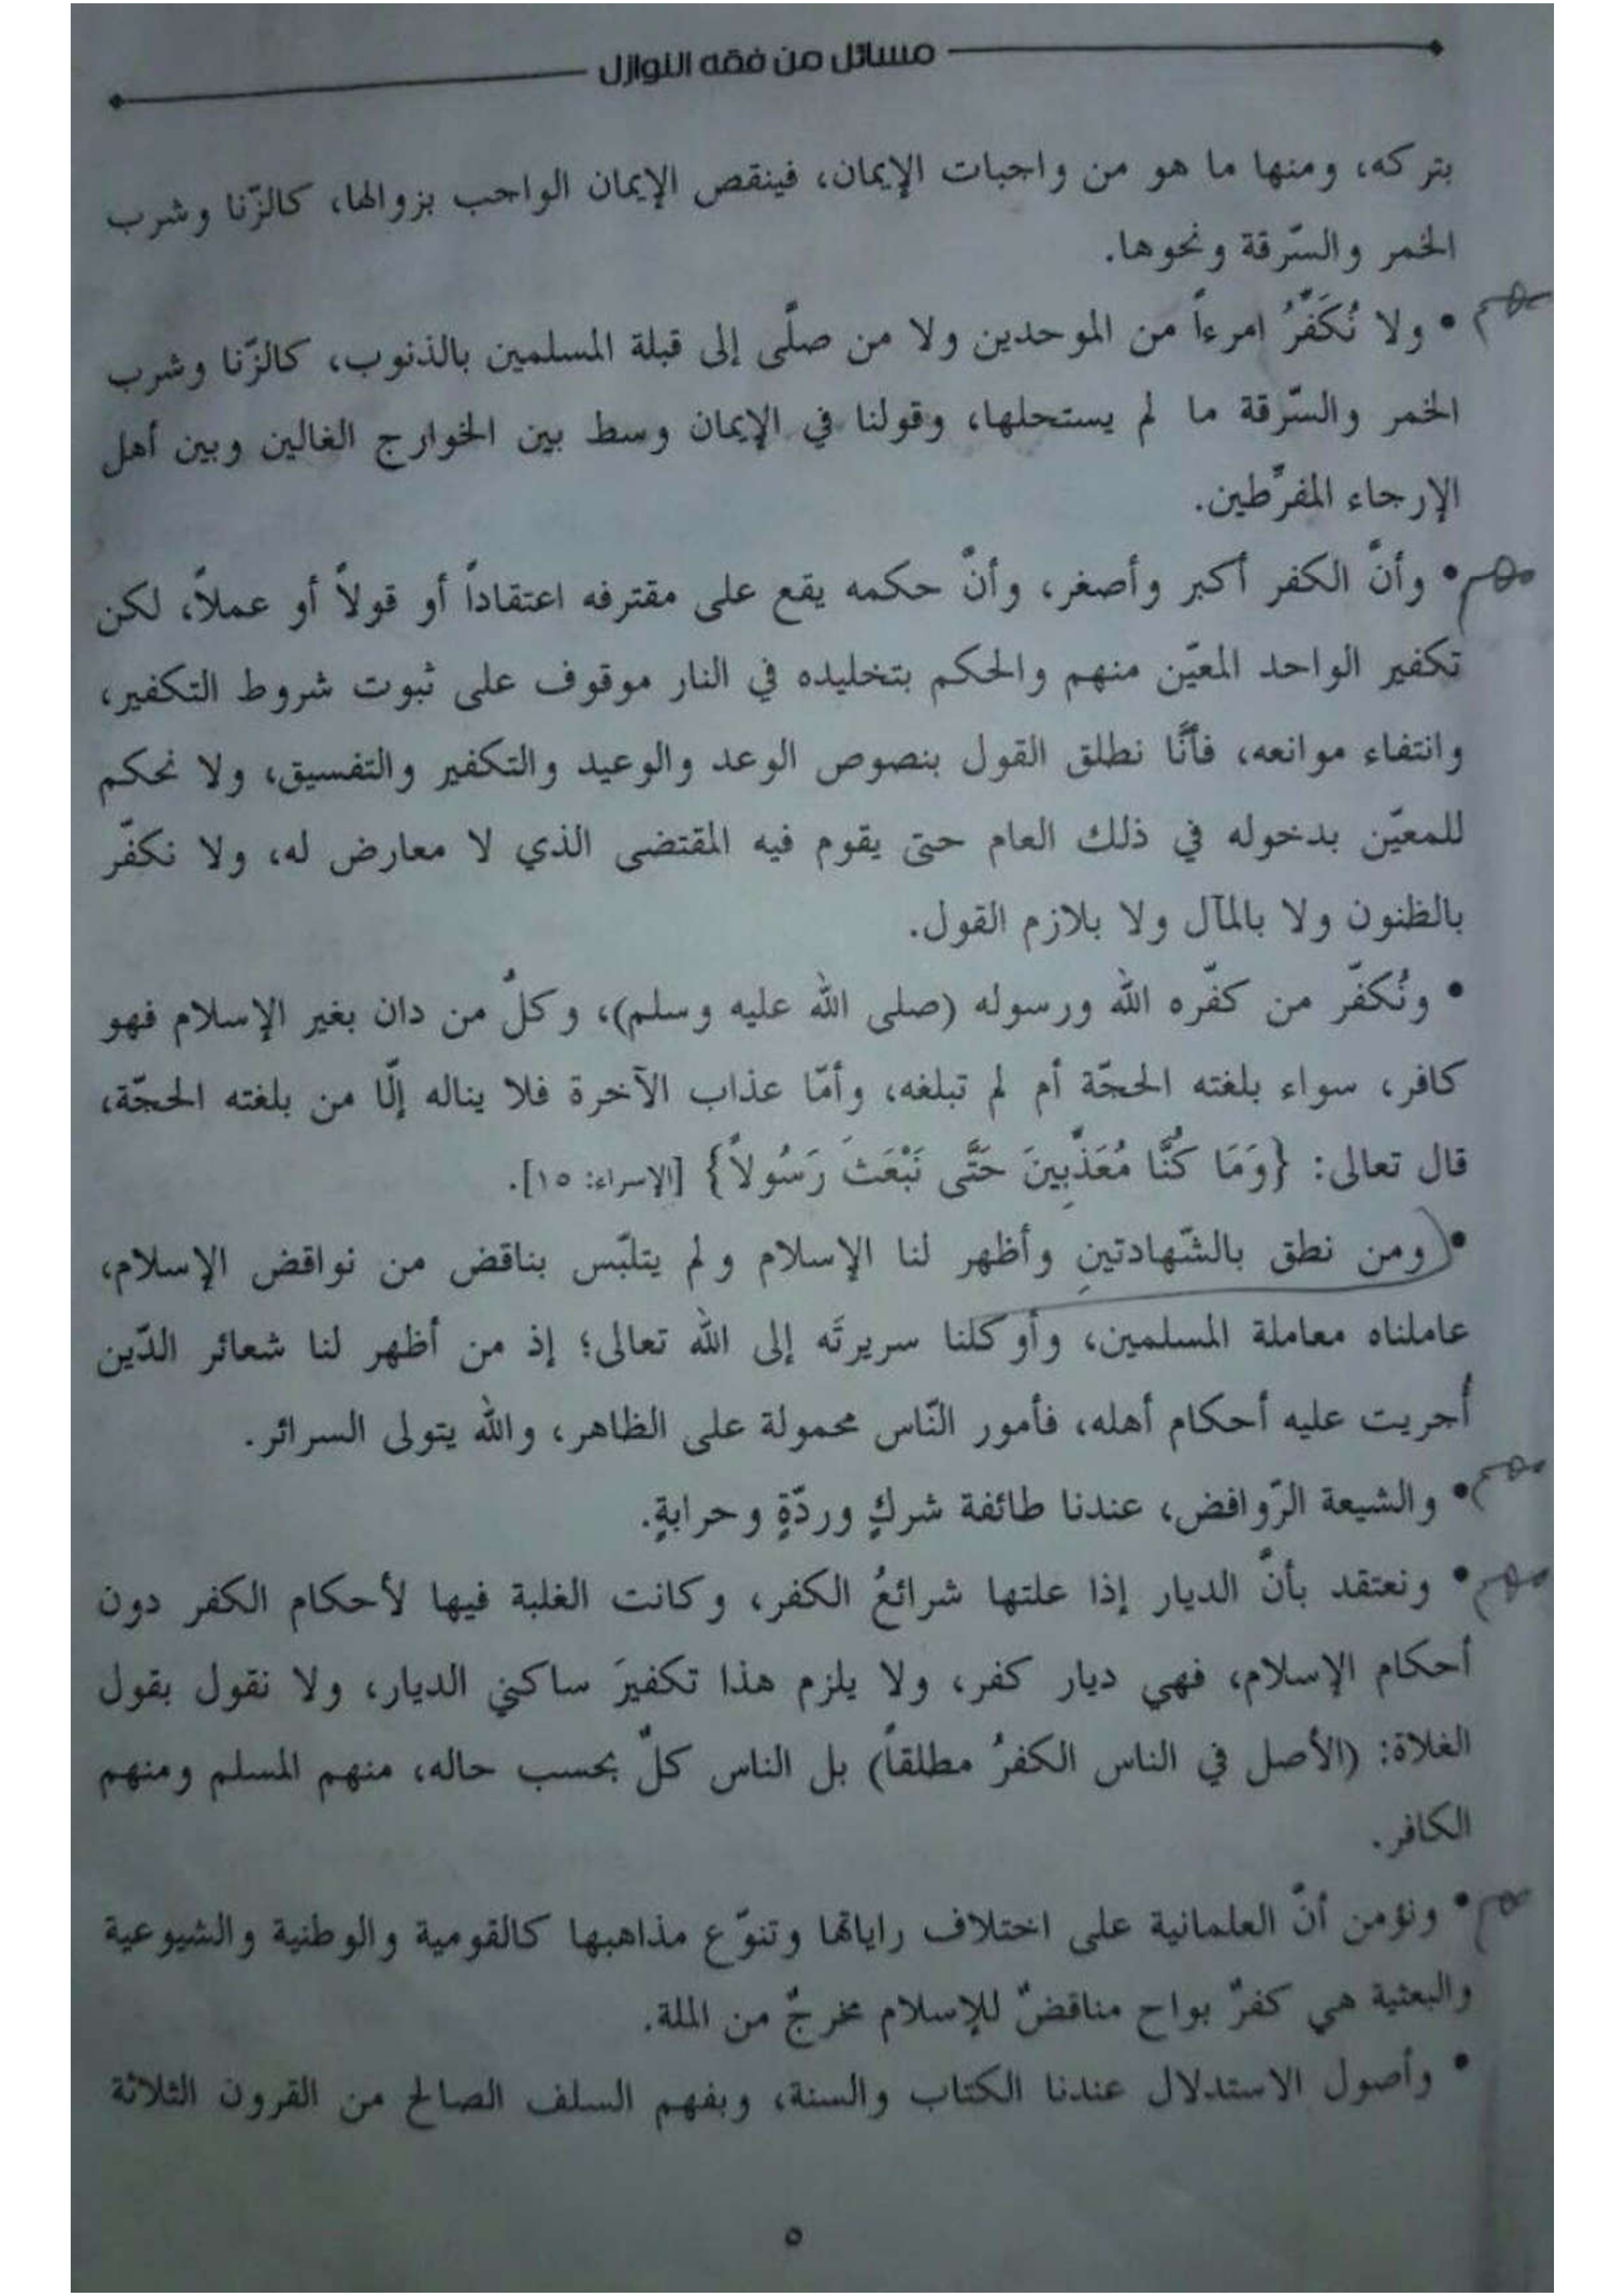 مسائل من فقه النوازل
بتركه، ومنها ما هو من واجبات الإيمان، فينقص الإيمان الواجب بزوالها، كالزّنا وشرب
الخمر والسّرقة ونحوها.
مهم
• ولا نُكَفِّرُ امرءاً من الموحدين ولا من صلّى إلى قبلة المسلمين بالذنوب، كالزّنا وشرب
الخمر والسّرقة ما لم يستحلها، وقولنا في الإيمان وسط بين الخوارج الغالين وبين أهل
الإرجاء المفرّطين.
مهم
• وأنّ الكفر أكبر وأصغر، وأنّ حكمه يقع على مقترفه اعتقاداً أو قولاً أو عملاً، لكن
تكفير الواحد المعيّن منهم والحكم بتخليده في النار موقوف على ثبوت شروط التكفير،
وانتفاء موانعه، فأنّنا نطلق القول بنصوص الوعد والوعيد والتكفير والتفسيق، ولا نحكم
للمعيّن بدخوله في ذلك العام حتى يقوم فيه المقتضى الذي لا معارض له، ولا نكفّر
بالظنون ولا بالمآل ولا بلازم القول.
• ونُكفّر من كفّره الله ورسوله (صلى الله عليه وسلم)، وكلّ من دان بغير الإسلام فهو
كافر، سواء بلغته الحجّة أم لم تبلغه، وأمّا عذاب الآخرة فلا يناله إلّا من بلغته الحجّة،
قال تعالى: {وَمَا كُنَّا مُعَذِّبِينَ حَتَّى نَبْعَثَ رَسُولاً} [الإسراء: ١٥].
• ومن نطق بالشّهادتينِ وأظهر لنا الإسلام ولم يتلبّس بناقض من نواقض الإسلام،
عاملناه معاملة المسلمين، وأوكلنا سريرتَه إلى الله تعالى؛ إذ من أظهر لنا شعائر الدّين
أُجريت عليه أحكام أهله، فأمور النّاس محمولة على الظاهر، والله يتولى السرائر.
مهم
• والشيعة الرّوافض، عندنا طائفة شركٍ وردّةٍ وحرابةٍ.
مهم
• ونعتقد بأنّ الديار إذا علتها شرائعُ الكفر، وكانت الغلبة فيها لأحكام الكفر دون
أحكام الإسلام، فهي ديار كفر، ولا يلزم هذا تكفيرَ ساكني الديار، ولا نقول بقول
الغلاة: (الأصل في الناس الكفرُ مطلقاً) بل الناس كلّ بحسب حاله، منهم المسلم ومنهم
الكافر.
مهم
• ونؤمن أنّ العلمانية على اختلاف راياتها وتنوّع مذاهبها كالقومية والوطنية والشيوعية
والبعثية هي كفرٌ بواح مناقضٌ للإسلام مخرجٌ من الملة.
• وأصول الاستدلال عندنا الكتاب والسنة، وبفهم السلف الصالح من القرون الثلاثة
٥